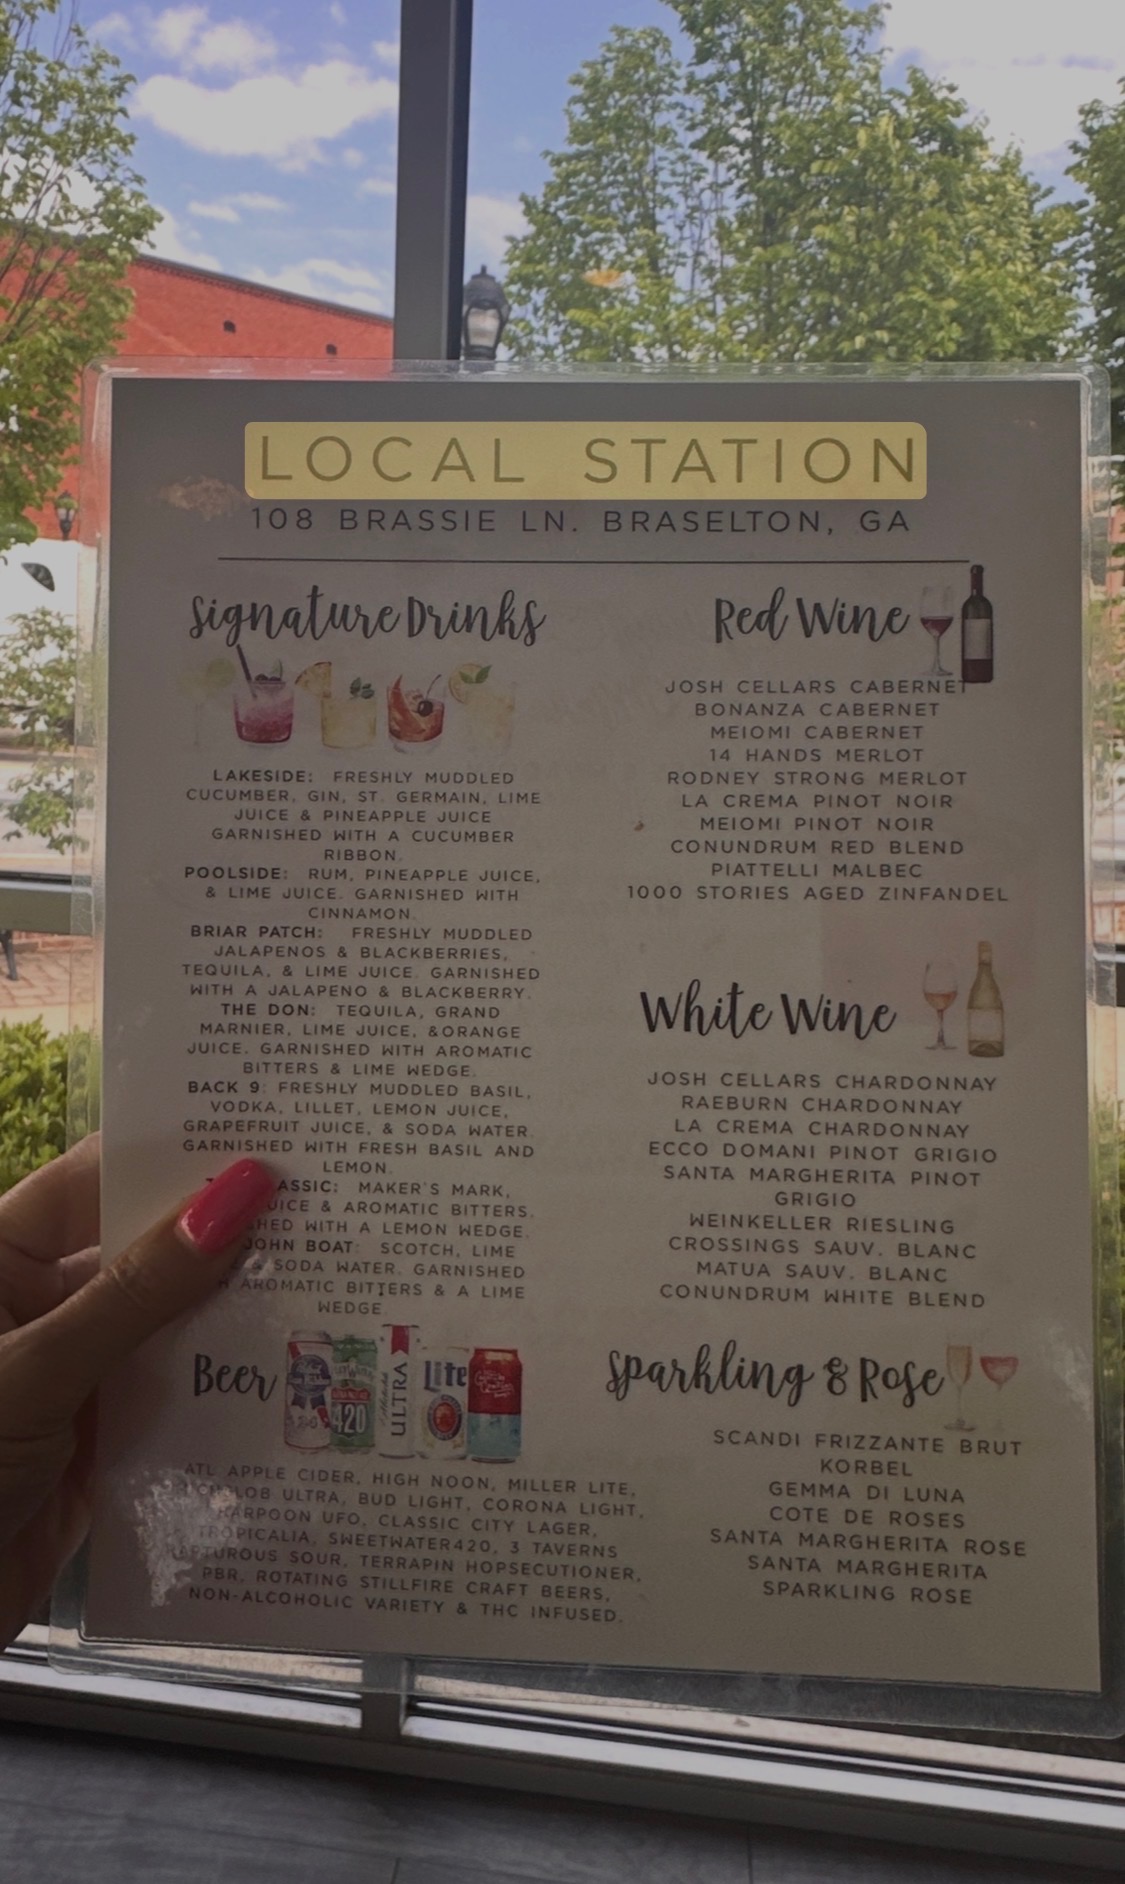 LOCAL STATION
108 BRASSIE LN. BRASELTON, GA
Signature Drinks
LAKESIDE: FRESHLY MUDDLED
CUCUMBER, GIN, ST. GERMAIN, LIME
JUICE & PINEAPPLE JUICE
GARNISHED WITH A CUCUMBER
RIBBON.
POOLSIDE: RUM, PINEAPPLE JUICE,
& LIME JUICE. GARNISHED WITH
CINNAMON.
BRIAR PATCH: FRESHLY MUDDLED
JALAPENOS & BLACKBERRIES,
TEQUILA, & LIME JUICE. GARNISHED
WITH A JALAPENO & BLACKBERRY.
THE DON: TEQUILA, GRAND
MARNIER, LIME JUICE, &ORANGE
JUICE. GARNISHED WITH AROMATIC
BITTERS & LIME WEDGE.
BACK 9: FRESHLY MUDDLED BASIL,
VODKA, LILLET, LEMON JUICE,
GRAPEFRUIT JUICE, & SODA WATER.
GARNISHED WITH FRESH BASIL AND
LEMON.
ASSIC: MAKER'S MARK,
UICE & AROMATIC BITTERS.
HED WITH A LEMON WEDGE.
JOHN BOAT: SCOTCH, LIME
& SODA WATER. GARNISHED
AROMATIC BITTERS & A LIME
WEDGE.
Beer
420
ULTRA
Lite
ATL APPLE CIDER, HIGH NOON, MILLER LITE,
ULTRA, BUD LIGHT, CORONA LIGHT,
HARPOON UFO, CLASSIC CITY LAGER,
TROPICALIA, SWEETWATER420, 3 TAVERNS
RAPTUROUS SOUR, TERRAPIN HOPSECUTIONER,
PBR, ROTATING STILLFIRE CRAFT BEERS,
NON-ALCOHOLIC VARIETY & THC INFUSED.
Red Wine
JOSH CELLARS CABERNET
BONANZA CABERNET
MEIOMI CABERNET
14 HANDS MERLOT
RODNEY STRONG MERLOT
LA CREMA PINOT NOIR
MEIOMI PINOT NOIR
CONUNDRUM RED BLEND
PIATTELLI MALBEC
1000 STORIES AGED ZINFANDEL
White Wine
JOSH CELLARS CHARDONNAY
RAEBURN CHARDONNAY
LA CREMA CHARDONNAY
ECCO DOMANI PINOT GRIGIO
SANTA MARGHERITA PINOT
GRIGIO
WEINKELLER RIESLING
CROSSINGS SAUV. BLANC
MATUA SAUV. BLANC
CONUNDRUM WHITE BLEND
Sparkling & Rose
SCANDI FRIZZANTE BRUT
KORBEL
GEMMA DI LUNA
COTE DE ROSES
SANTA MARGHERITA ROSE
SANTA MARGHERITA
SPARKLING ROSE